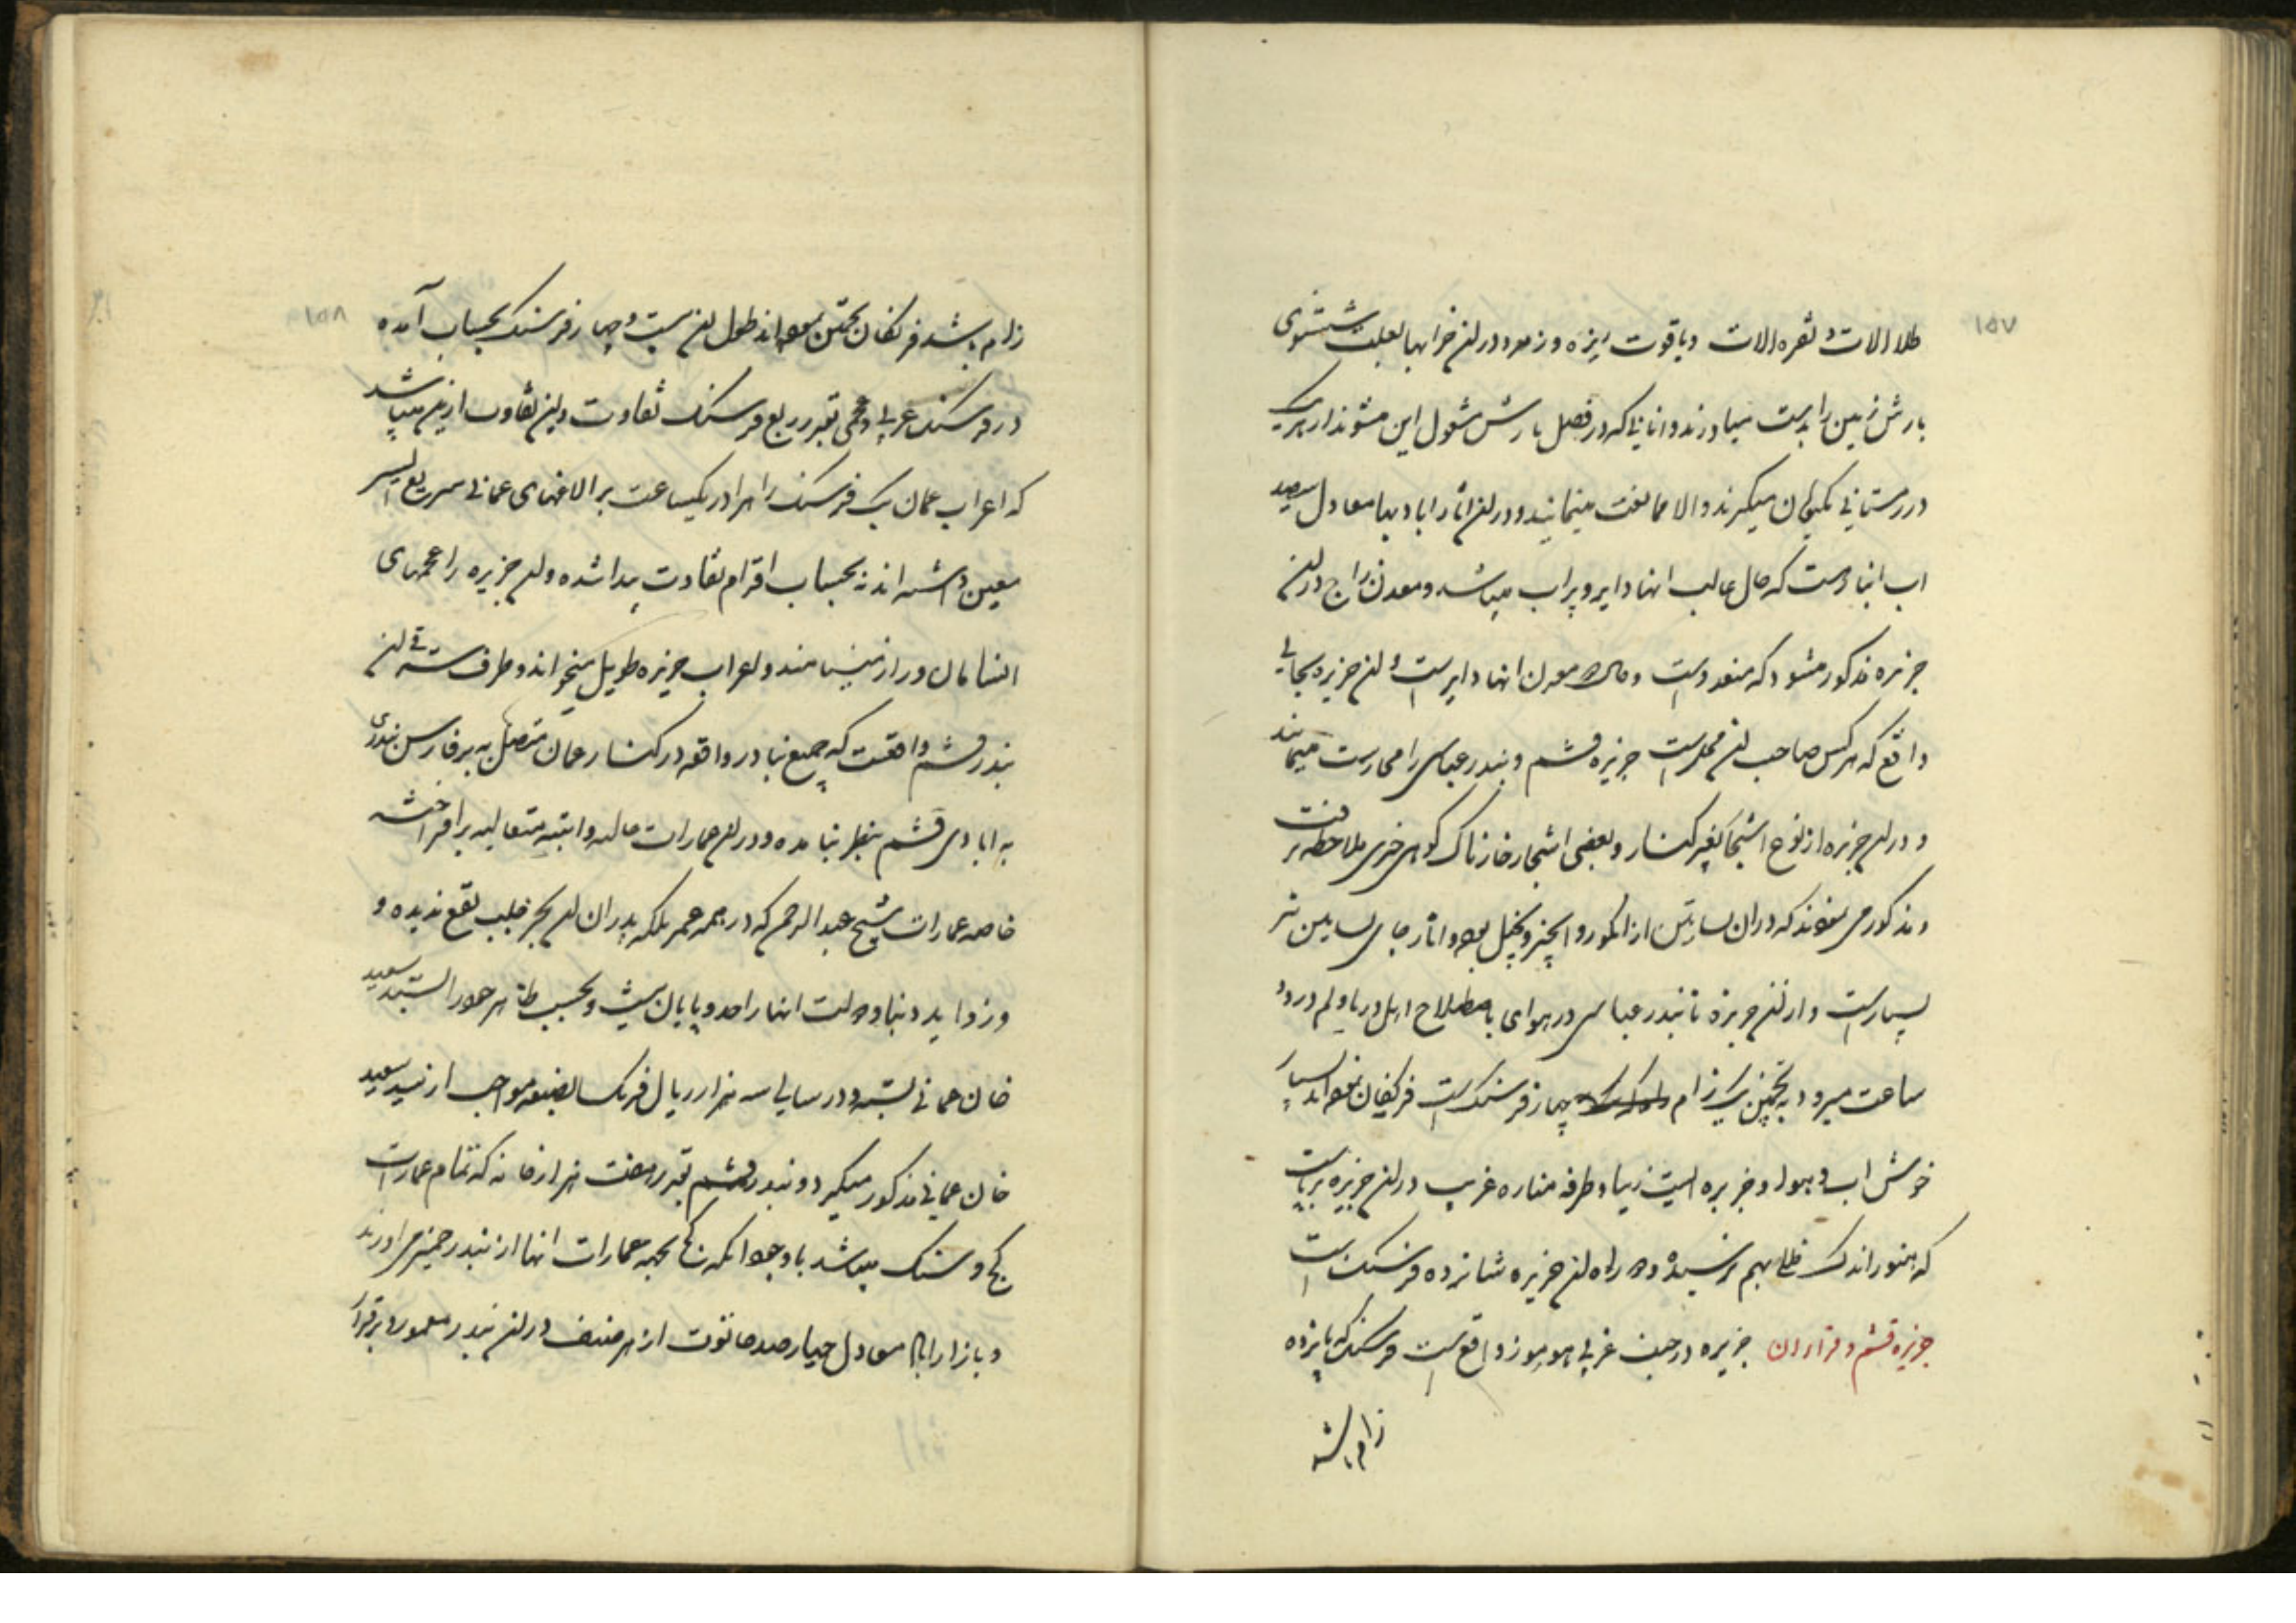 ۱۵۷
طلا الات و نقره الات و یاقوت ریزه و زمرد در ان خرابها بعلت شستشوی
بارش زمین را بدست میاورند و انانی که در فصل بارش مشغول این میشوند از هر یک
در زمستانی یکتومان میگیرند و الا ممانعت مینمایند و در ان اثار ابادیها معادل سیصد
اب انبار است که حال غالب انها دایر و پر اب میباشد و معدن زاج در ان
جزیره مذکور میشود که متعدد است و حال معدن انها دایر است و ان جزیره بجایی
واقع که هر کس صاحب ان محل است جزیره قشم و بندر عباسی را محارست مینماید
و در ان جزیره از نوع اشجار بغیر کنار و بعضی اشجار خارناک کوهی چیزی ملاحظه نرفت
و مذکور می نمودند که در ان بساتین از انگور و انجیر و نخیل بوده و اثار جای بساتین نیز
بسیار است و از ان جزیره تا بندر عباسی در هوای باصطلاح اهل دریا ولم در دو
ساعت میرود به تخمین یک زام چهار فرسنگ است فرنگیان نموده اند بسیار
خوش اب و هوا و جزیره ایست زیبا و طرفه مناره غریب در ان جزیره برپاست
که هنوز اندک خللی بهم نرسیده دوره راه ان جزیره شانزده فرسنگ است
جزیره قشم و قراء ان جزیره در جنب غربی هورموز واقع است فرسنگ که پانزده
زام باشد
۱۵۸
زام باشد فرنگان تخمین نموده اند طول ان بیست و چهار فرسنگ بحساب آمده
در فرسنگ عربی و عجمی بقدر ربع فرسنگ تفاوت و این تفاوت از این میباشد
که اعراب عمان یک فرسنگ راه را در یکساعت بر الاغهای عمانی سریع السیر
معین داشته اند نه بحساب اقدام تفاوت پیدا شده و ان جزیره را عجمهای
انسامان دراز مینامند و اعراب جزیره طویل میخوانند و طرف شرقی ان
بندر قشم واقعست که جمیع بنادر واقعه در کنار عمان متصل به بر فارس بندری
به ابادی قشم بنظر نیامده و در ان عمارات عالیه و ابنیه متعالیه برافراخته
خاصه عمارات شیخ عبدالرحمن که در همه عمر بلکه پدران ان بجز جلب نفع ندیده و
زواید دنیا دولت انها را حد و پایان نیست و بحسب ظاهر خود را بسته سید سعید
خان عمانی بسته و در سالی سه هزار ریال فرنگ بصیغه مواجب از سید سعید
خان عمانی مذکور میگیرد و بندر قشم بقدر هفت هزار خانه که تمام عمارات
گچ و سنگ میباشد با وجود انکه گچ بجهه عمارات انها از بندر خمیر می اورند
و بازار اباد معادل چهار صد حانوت از هر صنف در ان بندر معموره برقرار